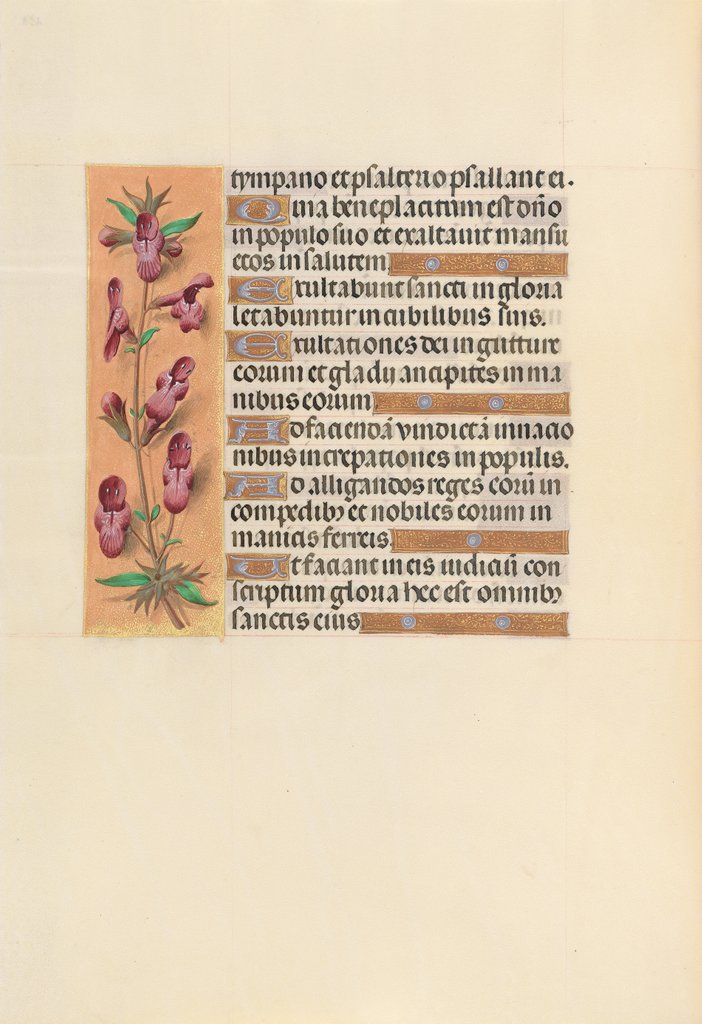 tympano et psalterio psallant ei.
Quia beneplacitum est dño
in populo suo et exaltavit mansu
etos in salutem
Exultabunt sancti in gloria
letabuntur in cubilibus suis.
Exultationes dei in gutture
eorum et gladii ancipites in ma
nibus eorum
Ad faciendã vindictã in nacio
nibus increpationes in populis.
Ad alligandos reges eorũ in
compedibꝰ et nobiles eorum in
manicis ferreis
Ut faciant in eis iudiciũ con
scriptum gloria hec est omnibꝰ
sanctis eius